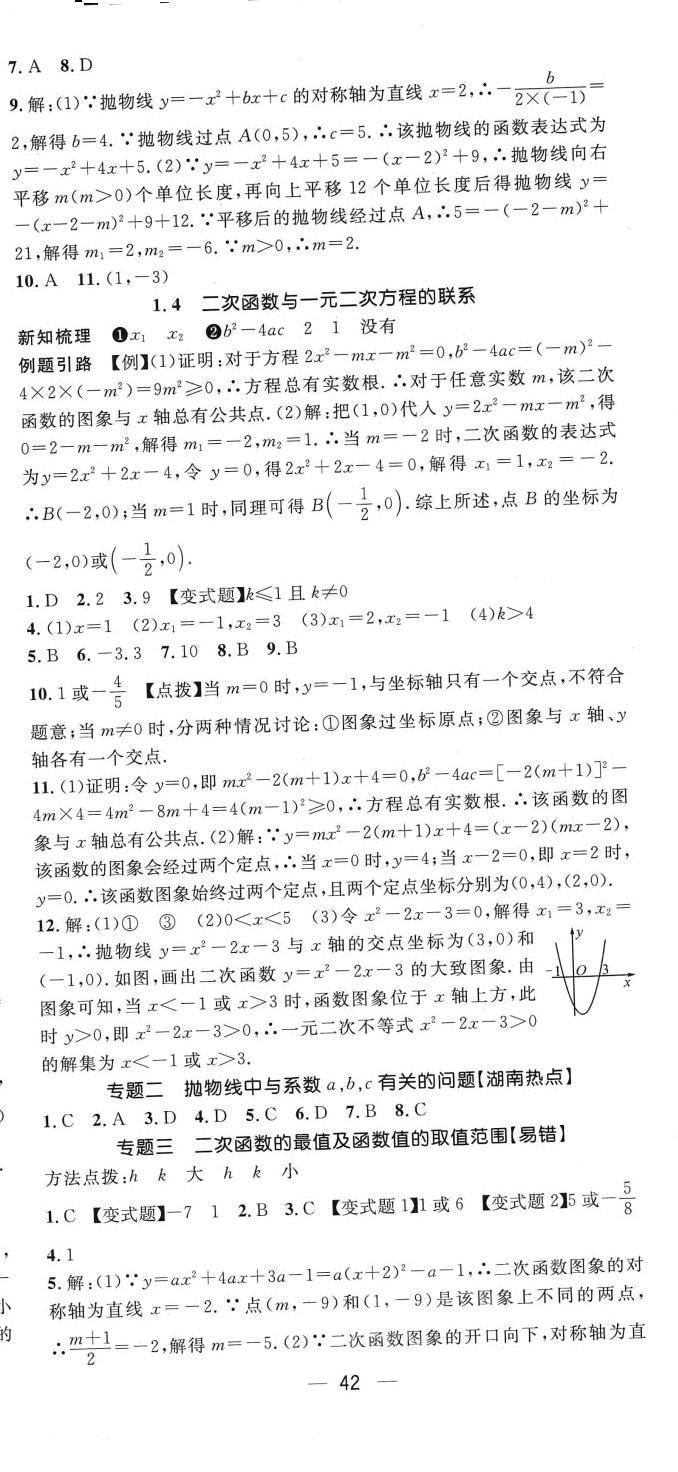 7. A  8. D
9. 解:(1)∵抛物线 y=-x²+bx+c 的对称轴为直线 x=2,∴-b/(2×(-1))=
2,解得 b=4. ∵抛物线过点 A(0,5),∴c=5. ∴该抛物线的函数表达式为
y=-x²+4x+5. (2)∵y=-x²+4x+5=-(x-2)²+9,∴抛物线向右
平移 m(m>0)个单位长度,再向上平移 12 个单位长度后得抛物线 y=
-(x-2-m)²+9+12. ∵平移后的抛物线经过点 A,∴5=-(-2-m)²+
21,解得 m₁=2,m₂=-6. ∵m>0,∴m=2.
10. A  11. (1,-3)
1.4 二次函数与一元二次方程的联系
新知梳理 ❶x₁ x₂ ❷b²-4ac 2 1 没有
例题引路 【例】(1)证明:对于方程 2x²-mx-m²=0,b²-4ac=(-m)²-
4×2×(-m²)=9m²≥0,∴方程总有实数根. ∴对于任意实数 m,该二次
函数的图象与 x 轴总有公共点. (2)解:把(1,0)代人 y=2x²-mx-m²,得
0=2-m-m²,解得 m₁=-2,m₂=1. ∴当 m=-2 时,二次函数的表达式
为y=2x²+2x-4,令 y=0,得2x²+2x-4=0,解得 x₁=1,x₂=-2.
∴B(-2,0);当 m=1 时,同理可得 B(-1/2,0). 综上所述,点 B 的坐标为
(-2,0)或(-1/2,0).
1. D  2. 2  3. 9 【变式题】k≤1 且 k≠0
4. (1)x=1 (2)x₁=-1,x₂=3 (3)x₁=2,x₂=-1 (4)k>4
5. B  6. -3.3  7. 10  8. B  9. B
10. 1 或-4/5 【点拨】当 m=0 时,y=-1,与坐标轴只有一个交点,不符合
题意;当 m≠0 时,分两种情况讨论:①图象过坐标原点;②图象与 x 轴、y
轴各有一个交点.
11. (1)证明:令 y=0,即 mx²-2(m+1)x+4=0,b²-4ac=[-2(m+1)]²-
4m×4=4m²-8m+4=4(m-1)²≥0,∴方程总有实数根. ∴该函数的图
象与 x 轴总有公共点. (2)解:∵y=mx²-2(m+1)x+4=(x-2)(mx-2),
该函数的图象会经过两个定点,∴当 x=0 时,y=4;当 x-2=0,即 x=2 时,
y=0. ∴该函数图象始终过两个定点,且两个定点坐标分别为(0,4),(2,0).
12. 解:(1)① ③ (2)0<x<5 (3)令 x²-2x-3=0,解得 x₁=3,x₂=
-1,∴抛物线 y=x²-2x-3 与 x 轴的交点坐标为(3,0)和
(-1,0). 如图,画出二次函数 y=x²-2x-3 的大致图象. 由
图象可知,当 x<-1 或 x>3 时,函数图象位于 x 轴上方,此
时 y>0,即 x²-2x-3>0,∴一元二次不等式 x²-2x-3>0
的解集为 x<-1 或 x>3.
y
-1 O 3
x
专题二 抛物线中与系数 a,b,c 有关的问题【湖南热点】
1. C  2. A  3. D  4. D  5. C  6. D  7. B  8. C
专题三 二次函数的最值及函数值的取值范围【易错】
方法点拨:h k 大 h k 小
1. C 【变式题】-7 1  2. B  3. C 【变式题 1】1 或 6 【变式题 2】5 或-5/8
4. 1
5. 解:(1)∵y=ax²+4ax+3a-1=a(x+2)²-a-1,∴二次函数图象的对
称轴为直线 x=-2. ∵点(m,-9)和(1,-9)是该图象上不同的两点,
∴(m+1)/2=-2,解得 m=-5. (2)∵二次函数图象的开口向下,对称轴为直
小
的
— 42 —